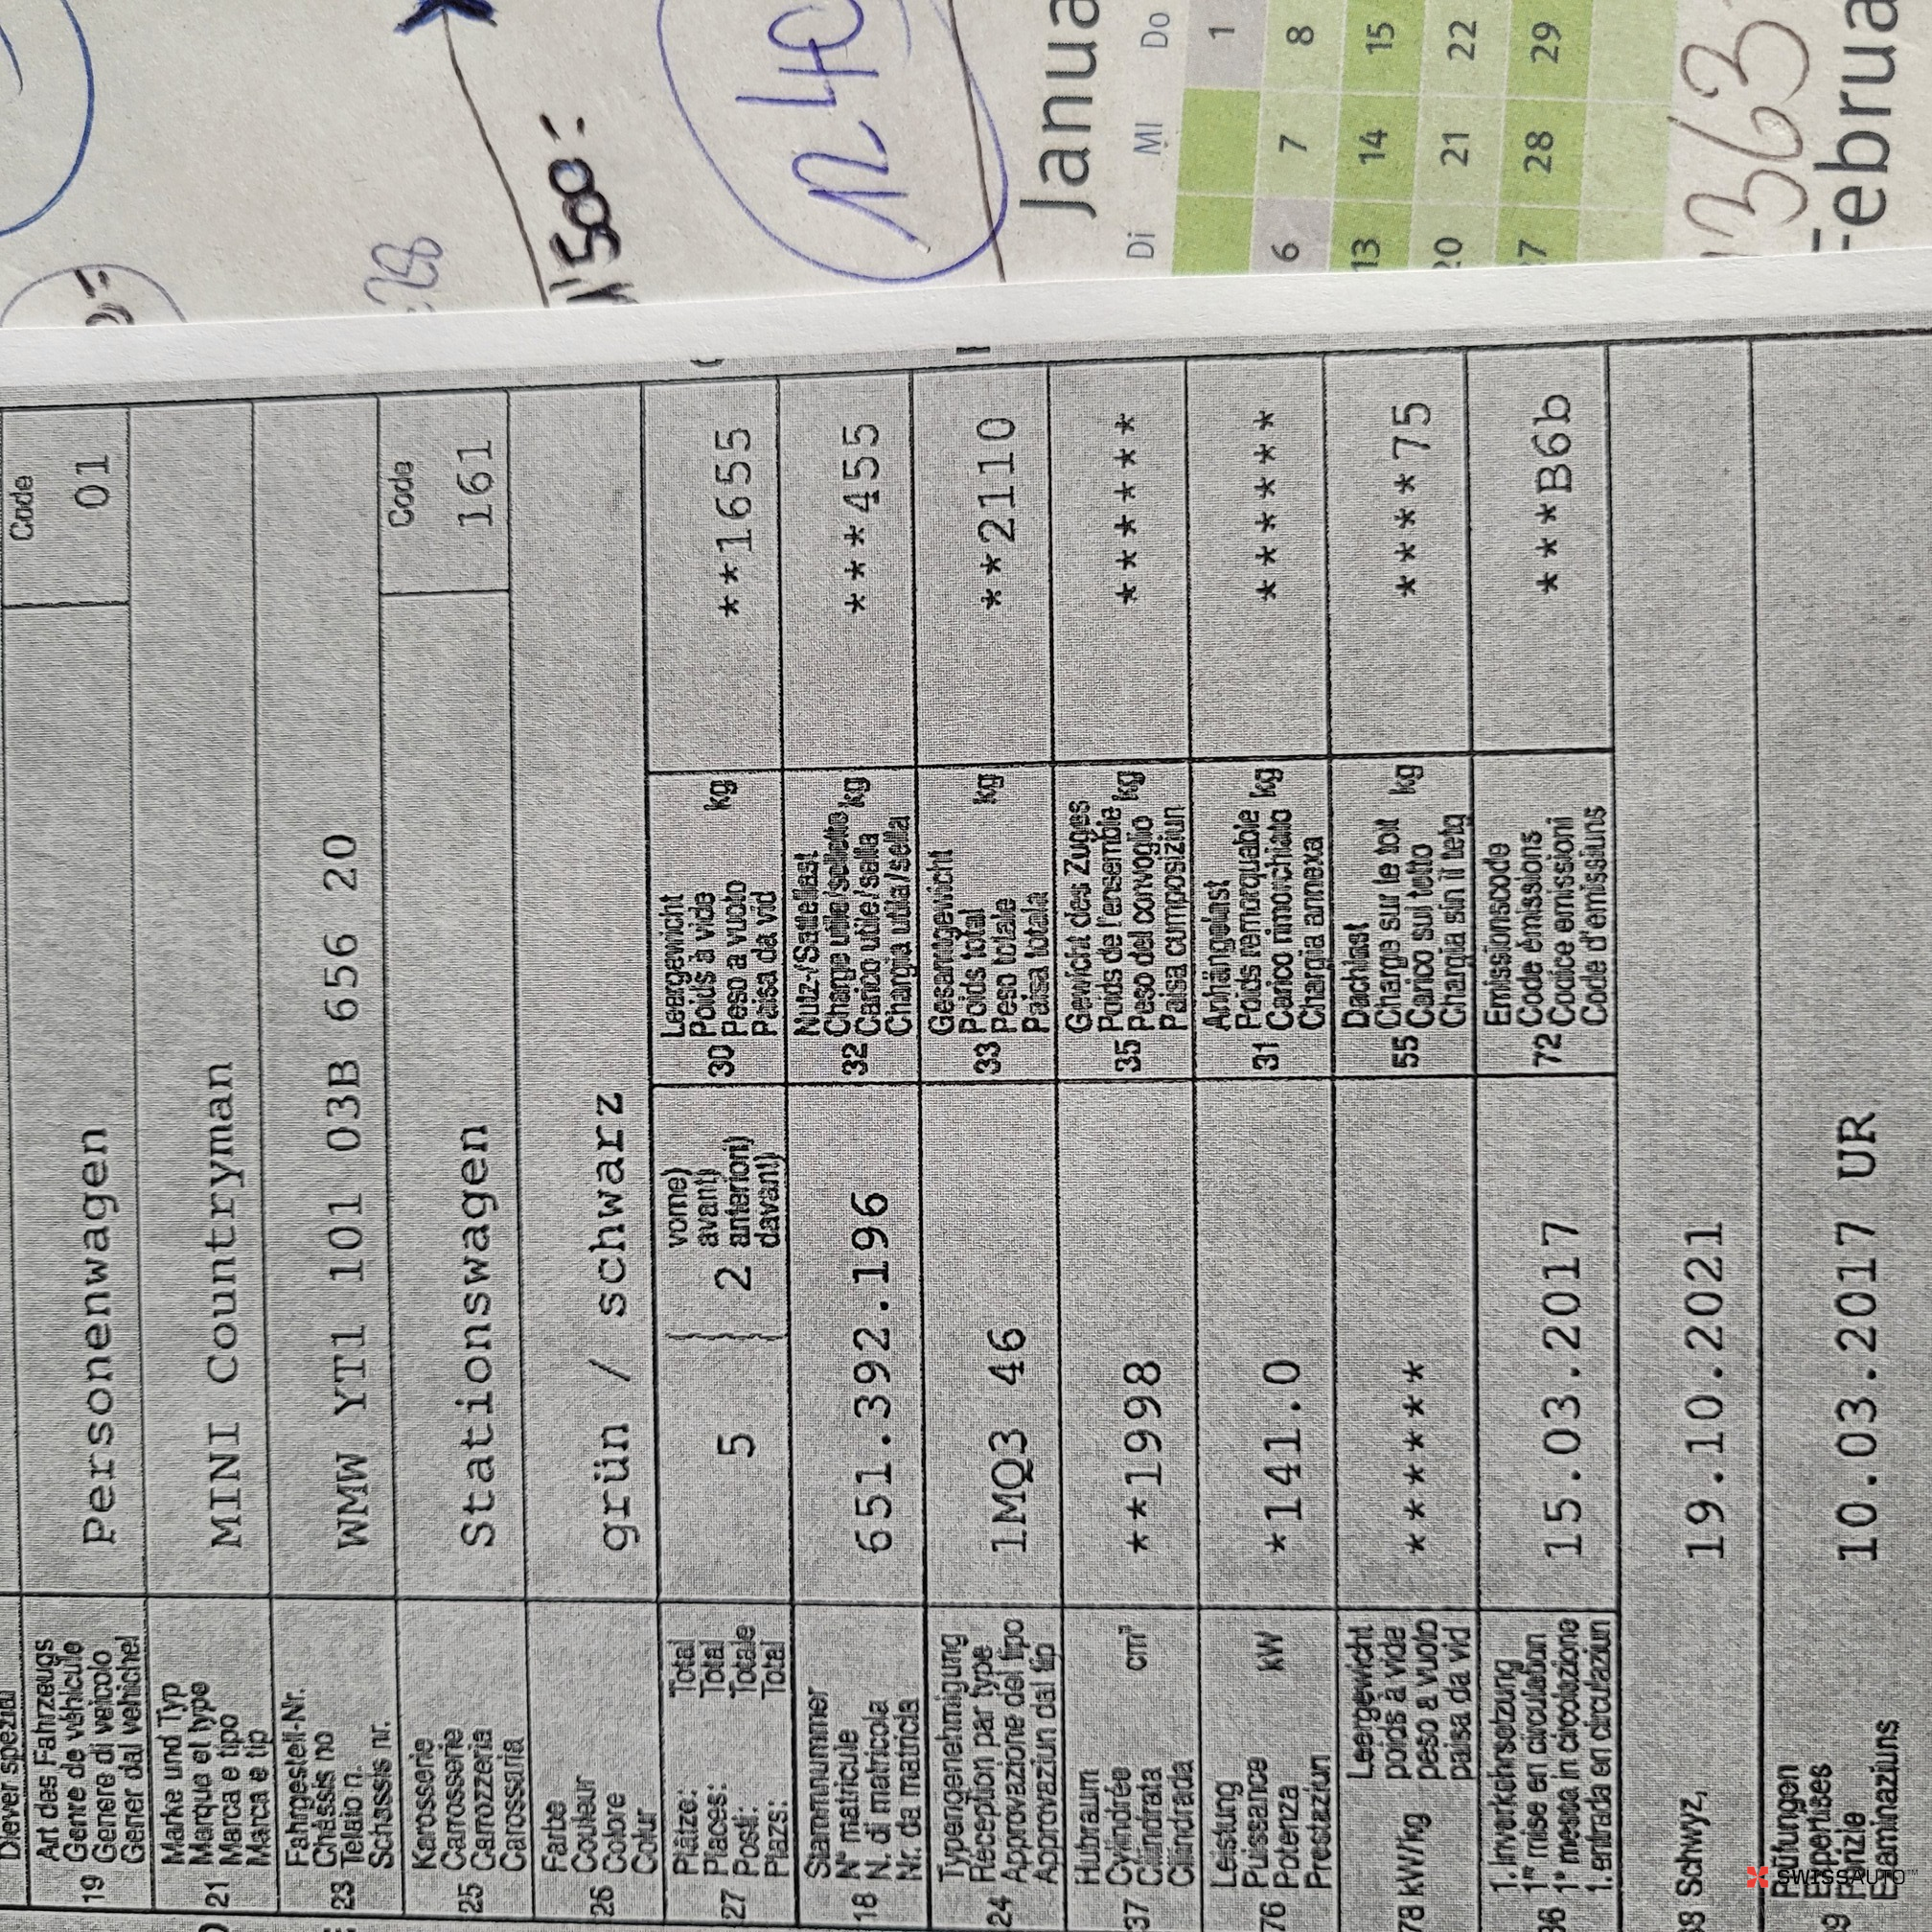 Code
Art des Fahrzeugs
Genre de véhicule
19 Genere di veicolo
Gener dal vehichel
Personenwagen
01
Marke und Typ
Marque et type
21 Marca e tipo
Marca e tip
MINI Countryman
Fahrgestell-Nr.
Châssis no
23 Telaio n.
Schassis nr.
WMW YT1 101 03B 656 20
Karosserie
Carosserie
25 Carozzeria
Carossaria
Stationswagen
Code
161
Farbe
Couleur
26 Colore
Colur
grün / schwarz
Plätze: Total
Places: Total
27 Posti: Totale
Plazs: Total
5
2
vorne)
avant)
anteriori)
davant)
Leergewicht
Poids à vide
30 Peso a vuoto kg
Paisa da vid
**1655
Stammnummer
N° matricule
18 N. di matricola
Nr. da matricla
651.392.196
Nutz-/Sattellast
Charge utile/sellette
32 Carico utile/sella kg
Chargia utila/sella
***455
Typengenehmigung
Réception par type
24 Approvazione del tipo
Approvaziun dal tip
1MQ3 46
Gesamtgewicht
Poids total
33 Peso totale kg
Paisa totala
**2110
Hubraum
Cylindrée
37 Cilindrata cm³
Cilindrada
**1998
Gewicht des Zuges
Poids de l'ensemble
35 Peso del convoglio kg
Paisa cumposiziun
*******
Leistung
Puissance
76 Potenza kW
Prestaziun
*141.0
Anhängelast
Poids remorquable
31 Carico rimorchiato kg
Chargia annexa
*******
Leergewicht
poids à vide
78 kW/kg peso a vuoto
paisa da vid
*******
Dachlast
Charge sur le toit
55 Carico sul tetto kg
Chargia sin il tetg
*****75
1. Inverkehrsetzung
1re mise en circulation
36 1a messa in circolazione
1. entrada en circulaziun
15.03.2017
Emissionscode
Code émissions
72 Codice emissioni
Code d'emissiuns
***B6b
38 Schwyz, 19.10.2021
Prüfungen
Expertises
Perizie
Examinaziuns
10.03.2017 UR
SWISSAUTO™
1'500.-
12 40
Janua
Di Mi Do
1
6 7 8
13 14 15
20 21 22
27 28 29
363
Februa